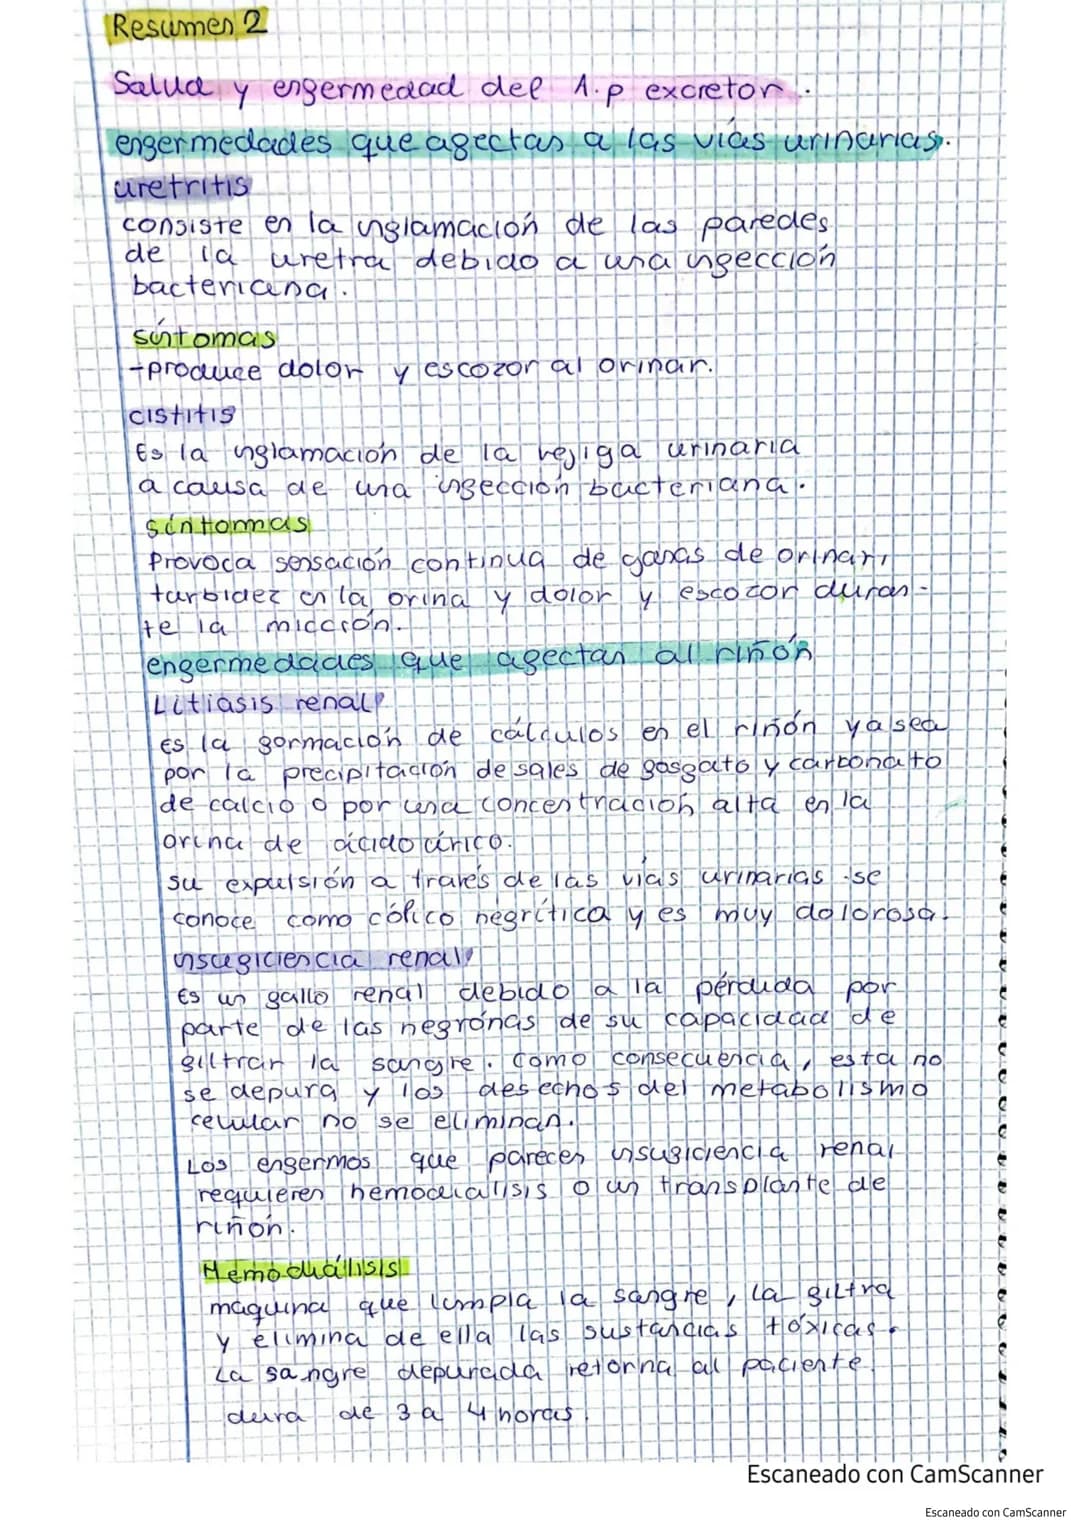 Resumen 2
Salud y enfermedad del A.p excretor.
enfermedades que afectan a las vías urinarias.
uretritis
consiste en la inflamación de las paredes
de la uretra debido a una infección
bacteriana.
síntomas
-produce dolor y escozor al orinar.
cistitis
Es la inflamación de la vejiga urinaria
a causa de una infección bacteriana.
síntomas
Provoca sensación continua de ganas de orinar,
turbidez en la orina y dolor y escozor duran-
te la micción.
enfermedades que afectan al riñón
Litiasis renal
Es la formación de cálculos en el riñón ya sea
por la precipitación de sales de fosfato y carbonato
de calcio o por una concentración alta en la
orina de ácido úrico.
su expulsión a través de las vías urinarias se
conoce como cólico nefrítica y es muy dolorosa.
insuficiencia renal
Es un fallo renal debido a la pérdida por
parte de las nefronas de su capacidad de
filtrar la sangre. Como consecuencia, esta no
se depura y los desechos del metabolismo
celular no se eliminan.
Los enfermos que parecen insuficiencia renal
requieren hemodialisis o un transplante de
riñón.
Hemodiálisis
maquina que limpia la sangre, la filtra
y elimina de ella las sustancias tóxicas.
La sangre depurada retorna al paciente.
dura de 3 a 4 horas.
Escaneado con CamScanner
Escaneado con CamScanner